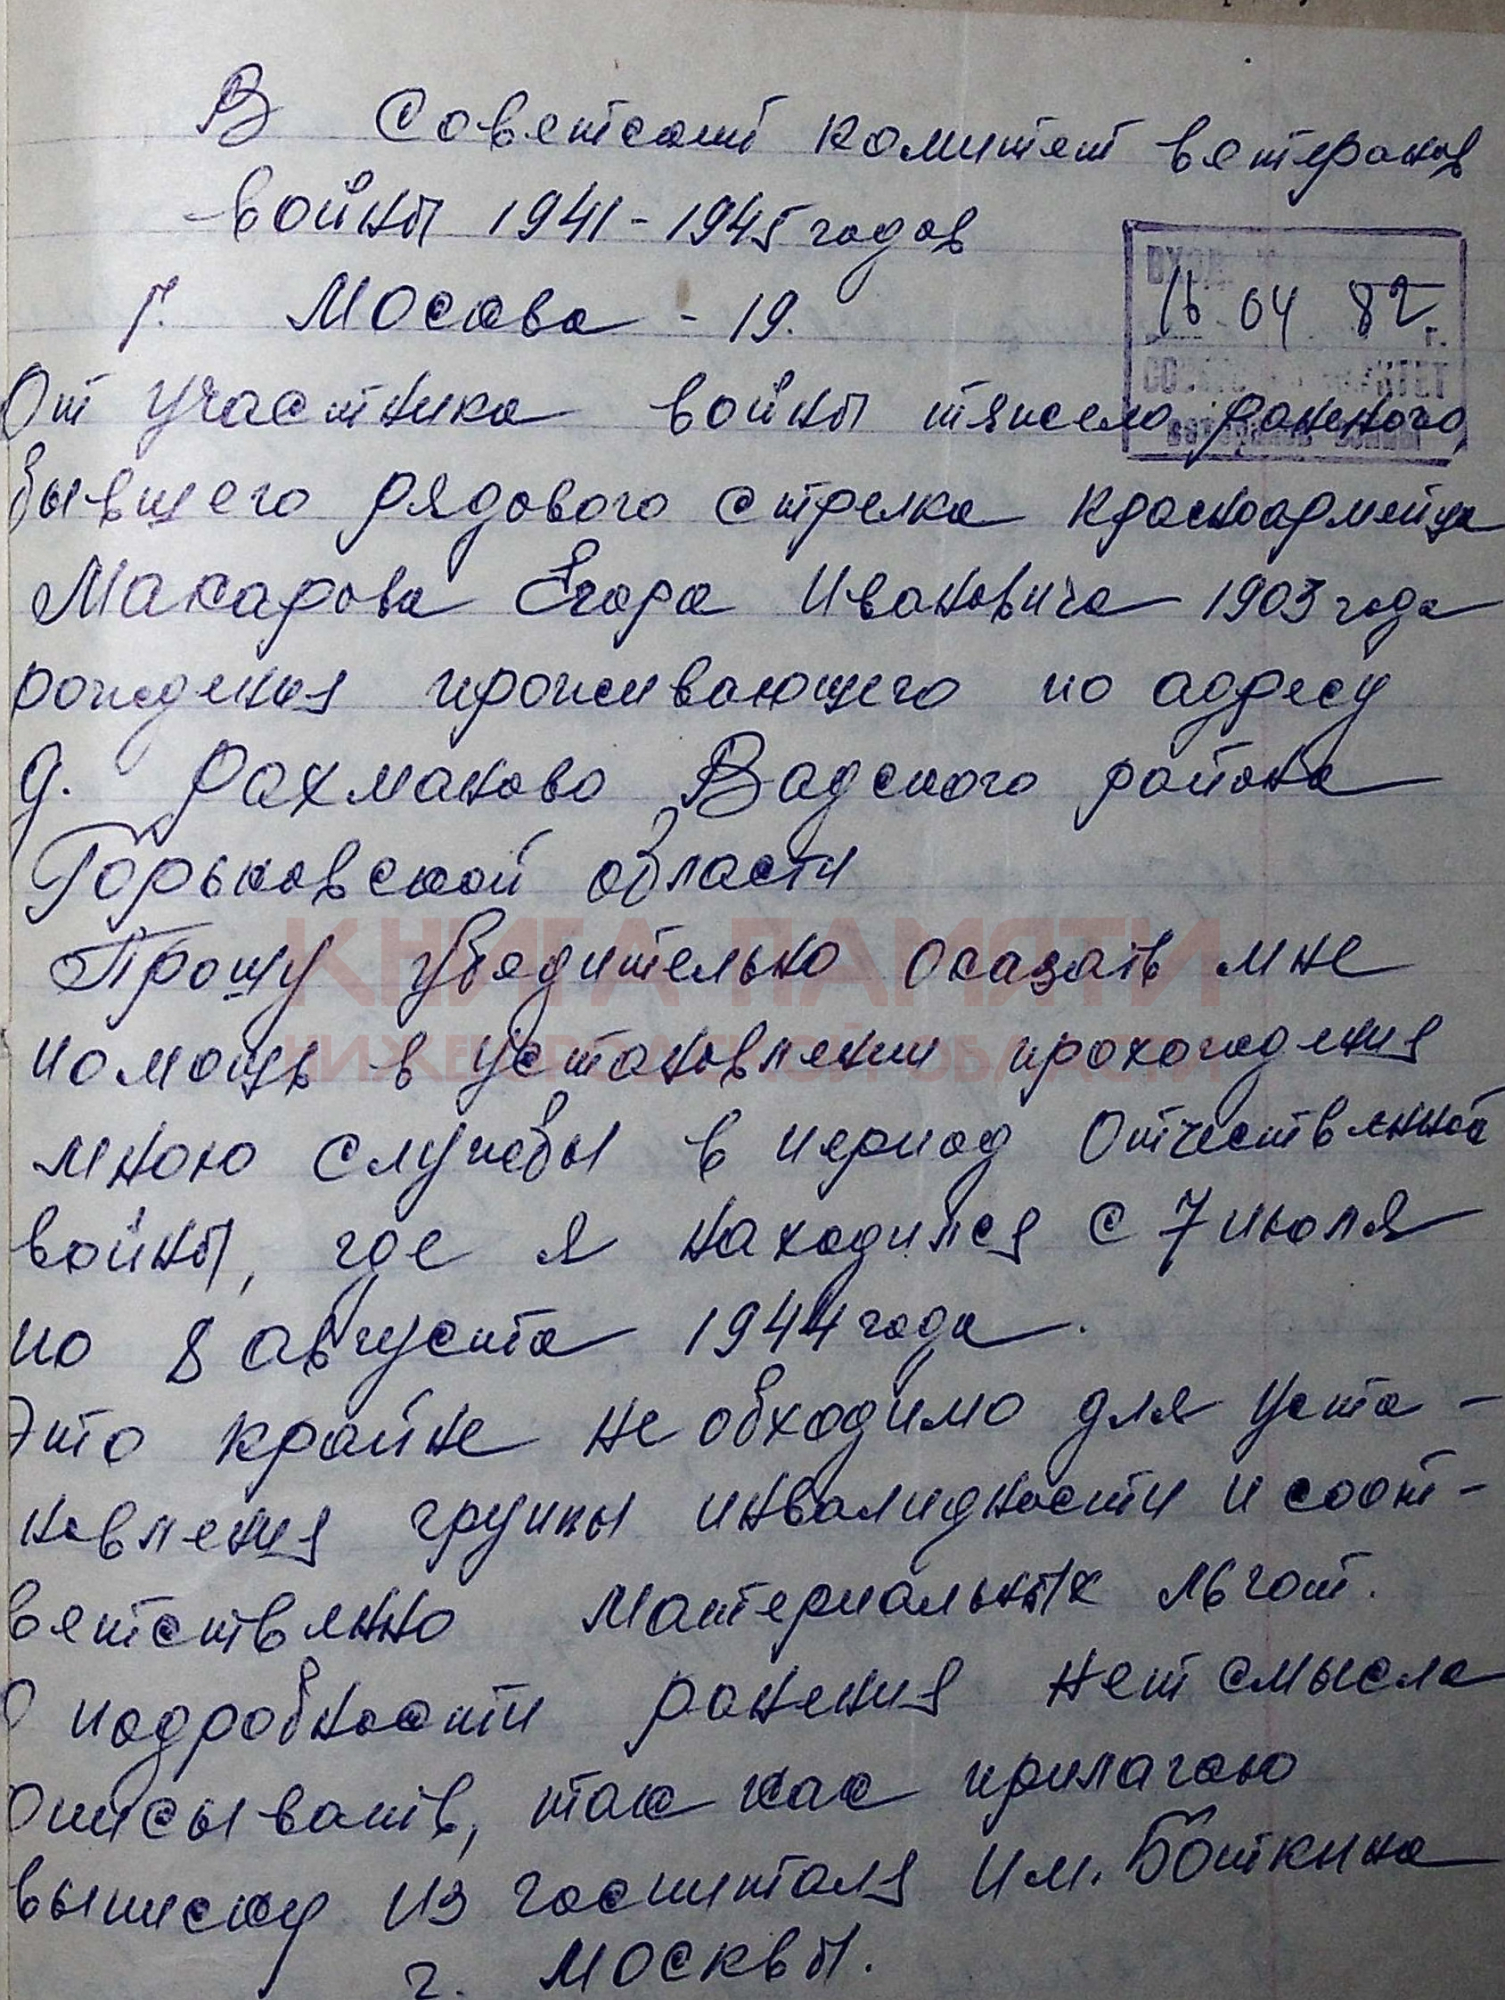 В Советский комитет ветеранов
войны 1941-1945 годов
г. Москва - 19.
ВХОД.
16 04 82 г.
КОМИТЕТ
ветеранов войны
От участника войны тяжело раненого,
бывшего рядового стрелка красноармейца
Макарова Егора Ивановича 1903 года
рождения проживающего по адресу
д. Рахманово Вадского района
Горьковской области
Прошу убедительно оказать мне
помощь в установлении прохождения
мною службы в период Отечественной
войны, где я находился с 7 июля
по 8 августа 1944 года.
Это крайне необходимо для уста-
новления группы инвалидности и соот-
ветственно материальных льгот.
О подробности ранения нет смысла
описывать, так как прилагаю
выписку из госпиталя им. Боткина
г. Москвы.
КНИГА ПАМЯТИ
НИЖЕГОРОДСКОЙ ОБЛАСТИ